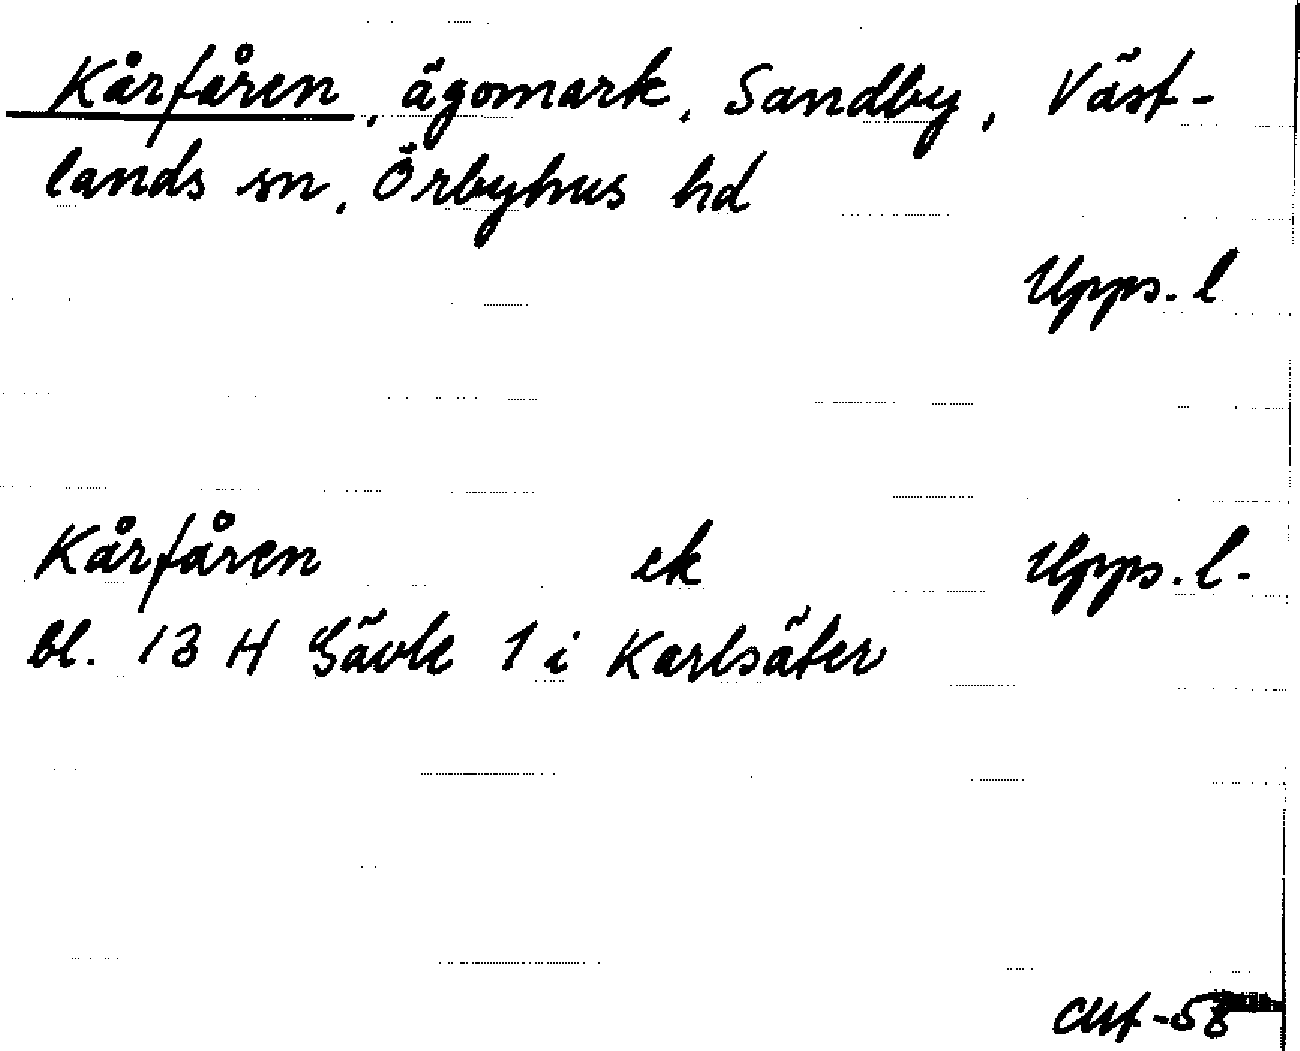 Kårfåren, ägomark, Sandby, Väst-
lands sn, Örbyhus hd
Upps. l
Kårfåren ek Upps. l.
bl. 13 H Gävle 1 i Karlsäter
-58